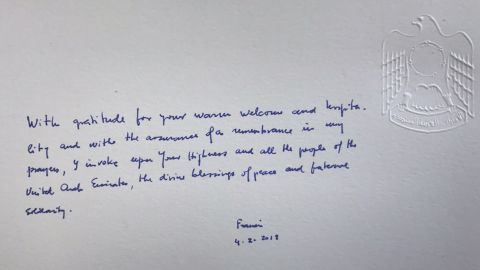 With gratitude for your warm welcome and hospita-
lity and with the assurance of a remembrance in my
prayers, I invoke upon Your Highness and all the people of the
United Arab Emirates, the divine blessings of peace and fraternal
solidarity.
4.2.2019